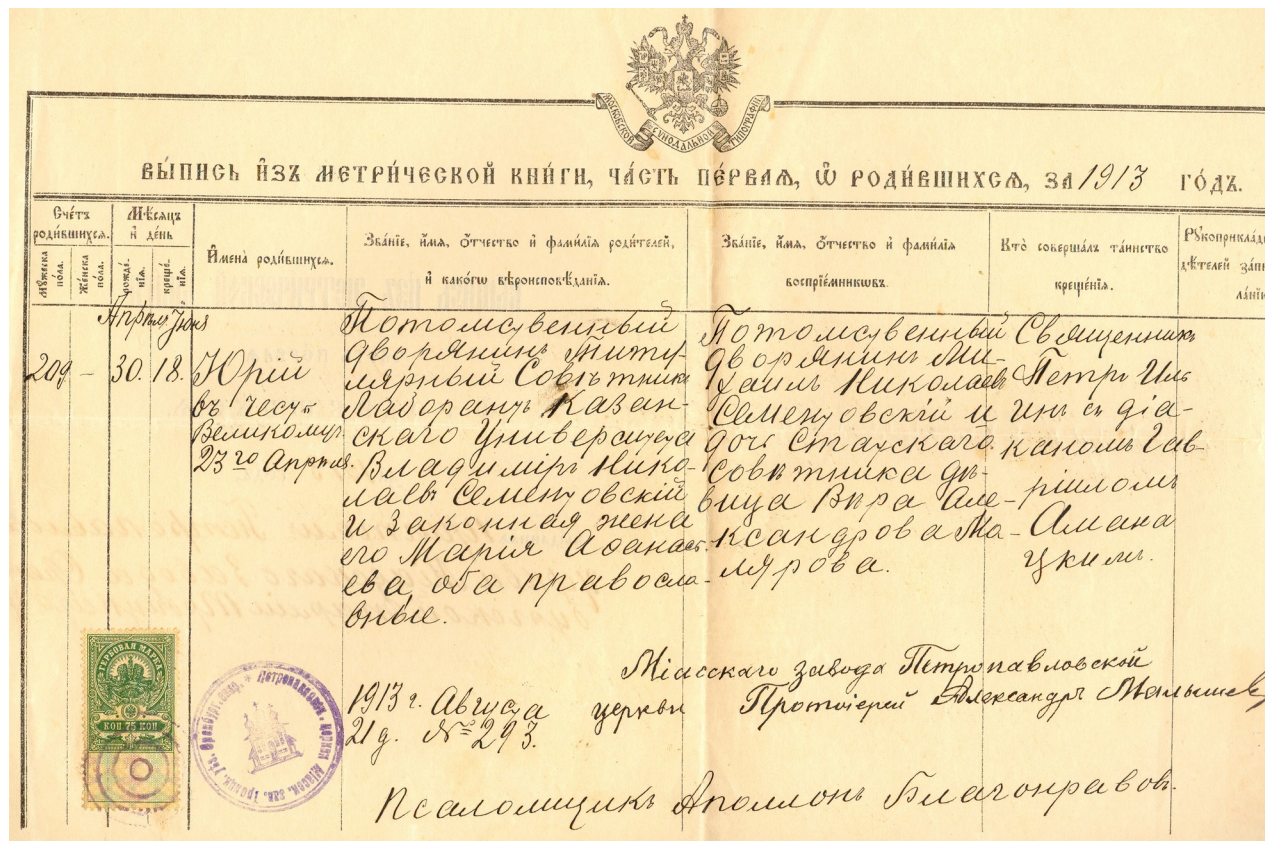 МОСКОВСКОЙ СѴНОДАЛЬНОЙ ТИПОГРАФІИ
ВЫ́ПИСЬ И҆ЗЪ МЕТРИ́ЧЕСКОЙ КНИ́ГИ, ЧА́СТЬ ПЕ́РВАѦ, Ѡ҆ РОДИ́ВШИХСѦ, ЗА 1913 ГО́ДЪ.
Сче́тъ родившихсѧ.
Мꙋжеска по́ла.
Же́нска по́ла.
Мѣ́сѧцъ и҆ де́нь
рожде́нїѧ.
креще́нїѧ.
И҆мена̀ роди́вшихсѧ.
Зва́нїе, и҆́мѧ, ѻ҆́тчество и҆ фами́лїѧ роди́телей,
и҆ како́гѡ вѣроисповѣ́данїѧ.
Зва́нїе, и҆́мѧ, ѻ҆́тчество и҆ фами́лїѧ
воспрїе́мникѡвъ.
Кто̀ соверша́лъ та́инство
креще́нїѧ.
Рꙋкоприкла́д
дѣ́телей за́пи
ла́нїю
Апрѣля Іюня
209 – 30. 18.
Юрій
въ честь
Великомуч
23го Апрѣля.
Потомственный
дворянинъ Титу-
лярный Совѣтникъ
Лаборантъ Казан-
скаго Университета
Владиміръ Нико-
лаевъ Сементовскій
и законная жена
его Марія Аѳанась-
ева, оба православ-
вные.
Потомственный
дворянинъ Ми-
хаилъ Николаевъ
Сементовскій и
дочь Статскаго
совѣтника дѣ-
вица Вѣра Але-
ксандрова Ма-
лярова.
Священникъ
Петръ Иль-
инъ съ діа-
кономъ Гав-
ріиломъ
Амана
цкимъ.
Міасскаго завода Петропавловской
церкви Протоіерей Александръ Малышев
1913 г. Августа
21 д. № 293.
Псаломщикъ Аполлонъ Благонравовъ.
ГЕРБОВАЯ МАРКА
КОП 75 КОП
Петропавловск. церкви Міасск. зав. Троицк. уѣз. Оренбург. епар.